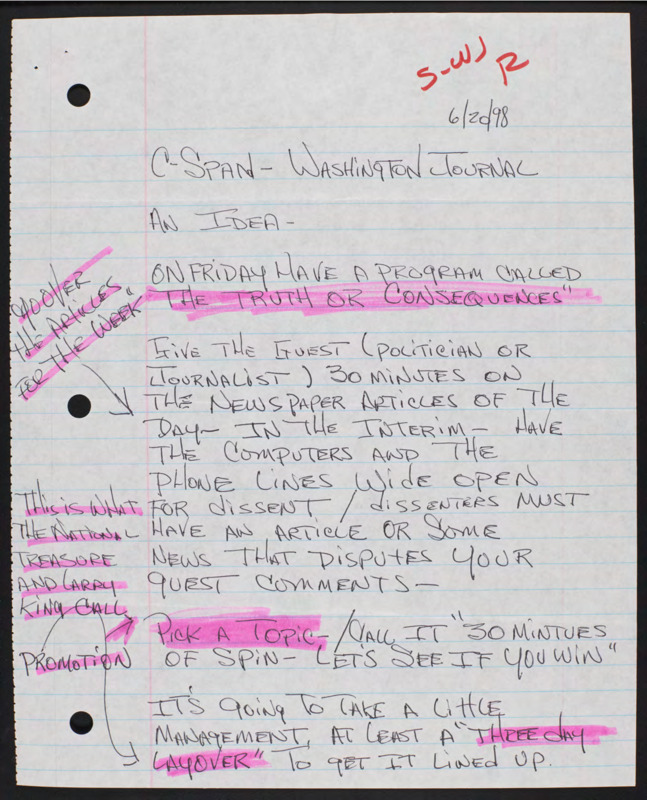 S-WJ R
6/20/98
C-SPAN - WASHINGTON JOURNAL
AN IDEA -
ON FRIDAY HAVE A PROGRAM CALLED
"THE TRUTH OR CONSEQUENCES"
GO OVER
THE ARTICLES
FOR THE WEEK"
GIVE THE GUEST (POLITICIAN OR
JOURNALIST) 30 MINUTES ON
THE NEWSPAPER ARTICLES OF THE
DAY - IN THE INTERIM - HAVE
THE COMPUTERS AND THE
PHONE LINES WIDE OPEN
FOR DISSENT / DISSENTERS MUST
HAVE AN ARTICLE OR SOME
NEWS THAT DISPUTES YOUR
GUEST COMMENTS -
THIS IS WHAT
THE NATIONAL
TREASURE
AND LARRY
KING CALL
PROMOTION
PICK A TOPIC - / CALL IT "30 MINTUES
OF SPIN - LET'S SEE IF YOU WIN"
IT'S GOING TO TAKE A LITTLE
MANAGEMENT, AT LEAST A "THREE DAY
LAYOVER" TO GET IT LINED UP.